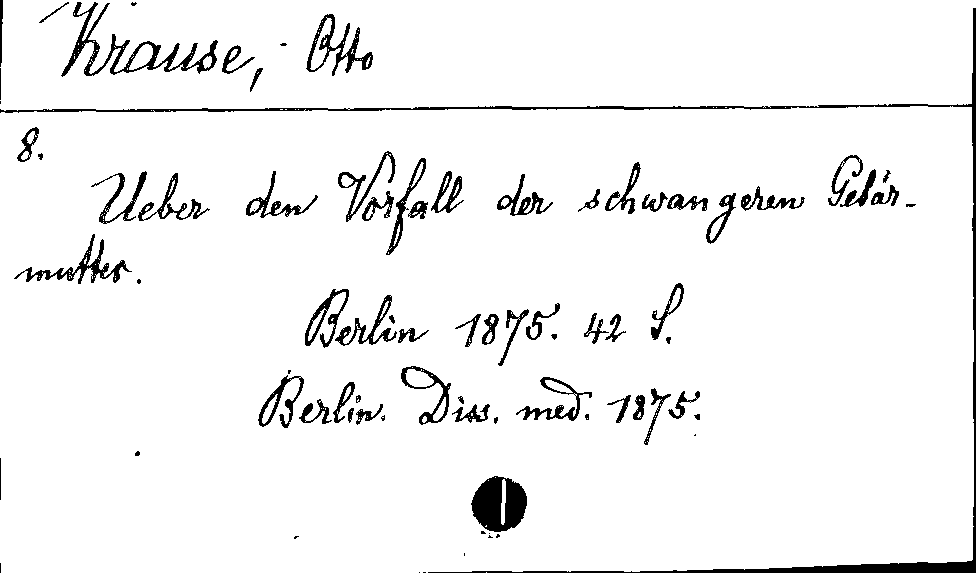 Krause, Otto
8.
Ueber den Vorfall der schwangeren Gebär-
mutter.
Berlin 1875. 42 S.
Berlin. Diss. med. 1875.